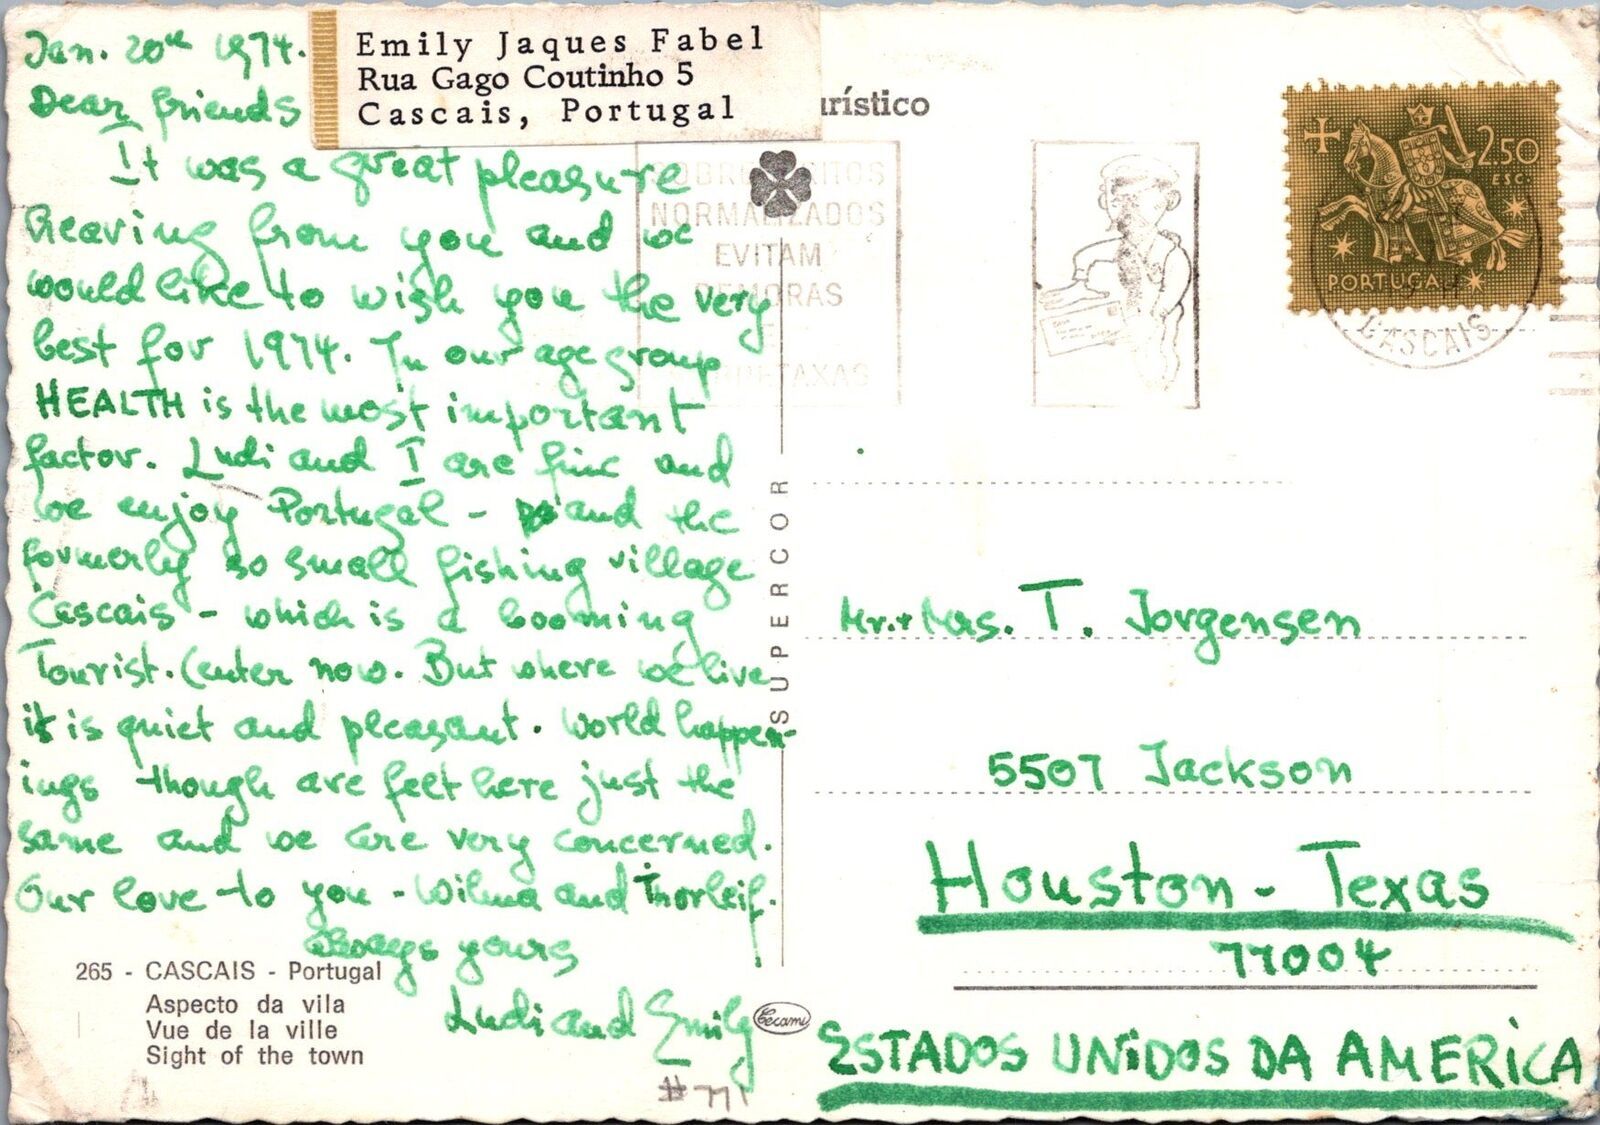 Jan. 20th 1974.
Dear friends
It was a great pleasure
hearing from you and we
would like to wish you the very
best for 1974. In our age group
HEALTH is the most important
factor. Ludi and I are fine and
we enjoy Portugal - and the
formerly so small fishing village
Cascais - which is a booming
Tourist. Center now. But where we live
it is quiet and pleasant. World happen-
ings though are felt here just the
same and we are very concerned.
Our love to you - Wilma and Thorleif.
always yours
Ludi and Emily
Emily Jaques Fabel
Rua Gago Coutinho 5
Cascais, Portugal
urístico
NORMALIZADOS
EVITAM
DEMORAS
2.50
ESC.
PORTUGAL
CASCAIS
SUPERCOR
Mr. + Mrs. T. Jorgensen
5507 Jackson
Houston - Texas
77004
ESTADOS UNIDOS DA AMERICA
265 - CASCAIS - Portugal
Aspecto da vila
Vue de la ville
Sight of the town
Cecami
#771